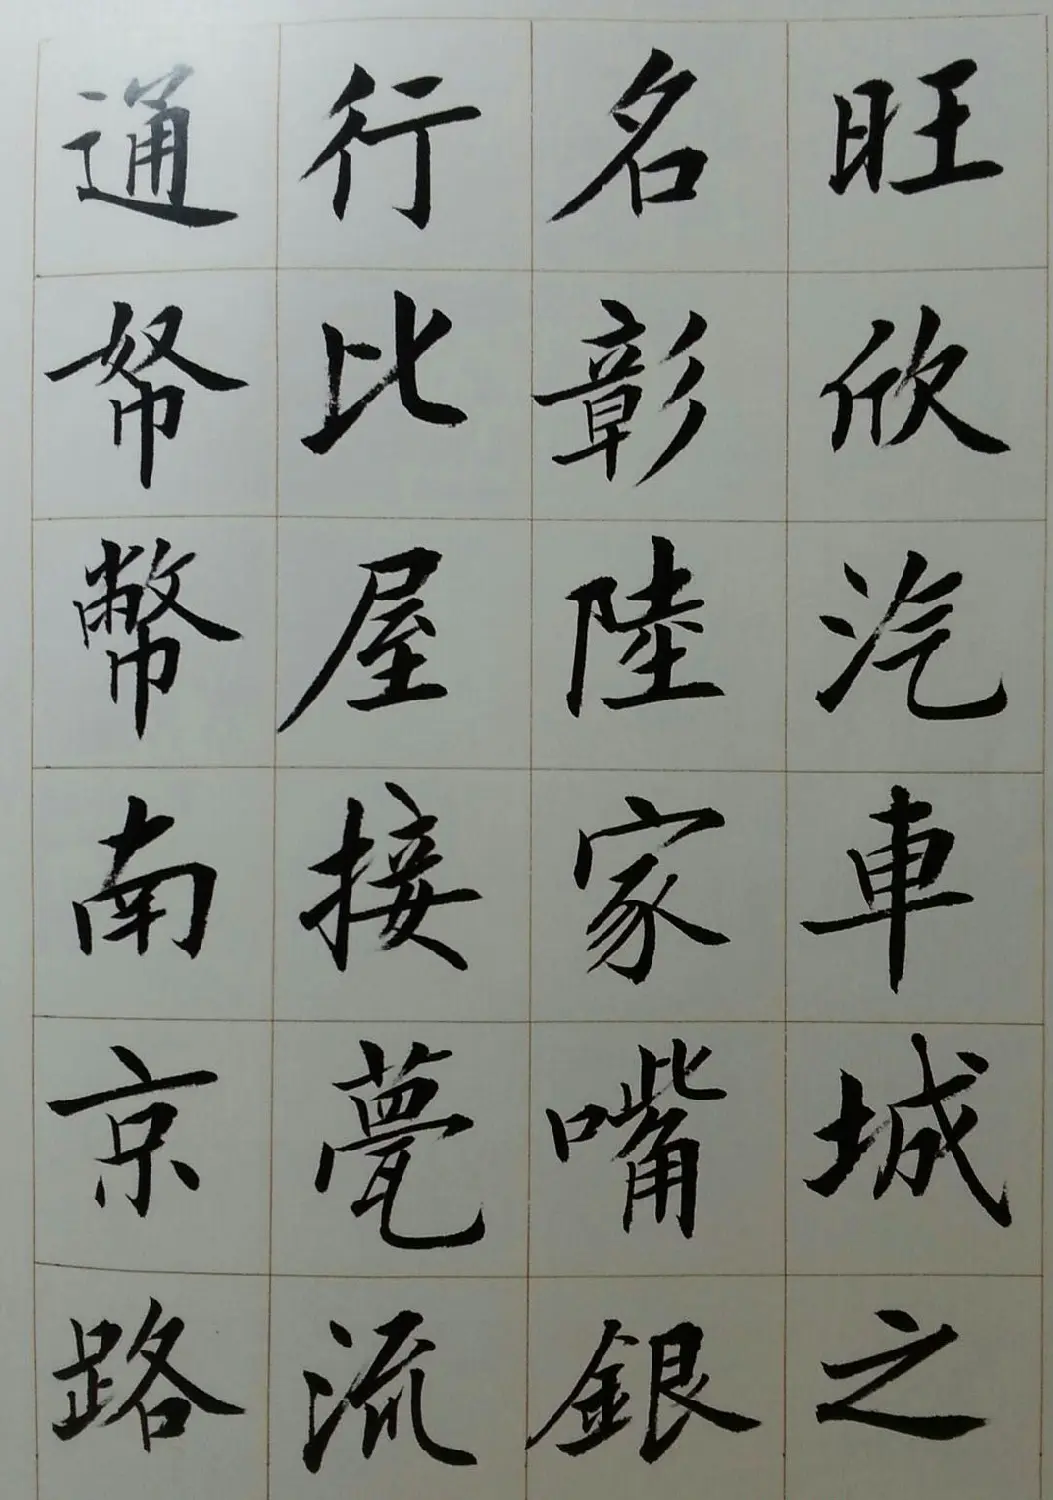 旺欣汽車城之
名彰陸家嘴銀
行比屋接甍流
通帑幣南京路